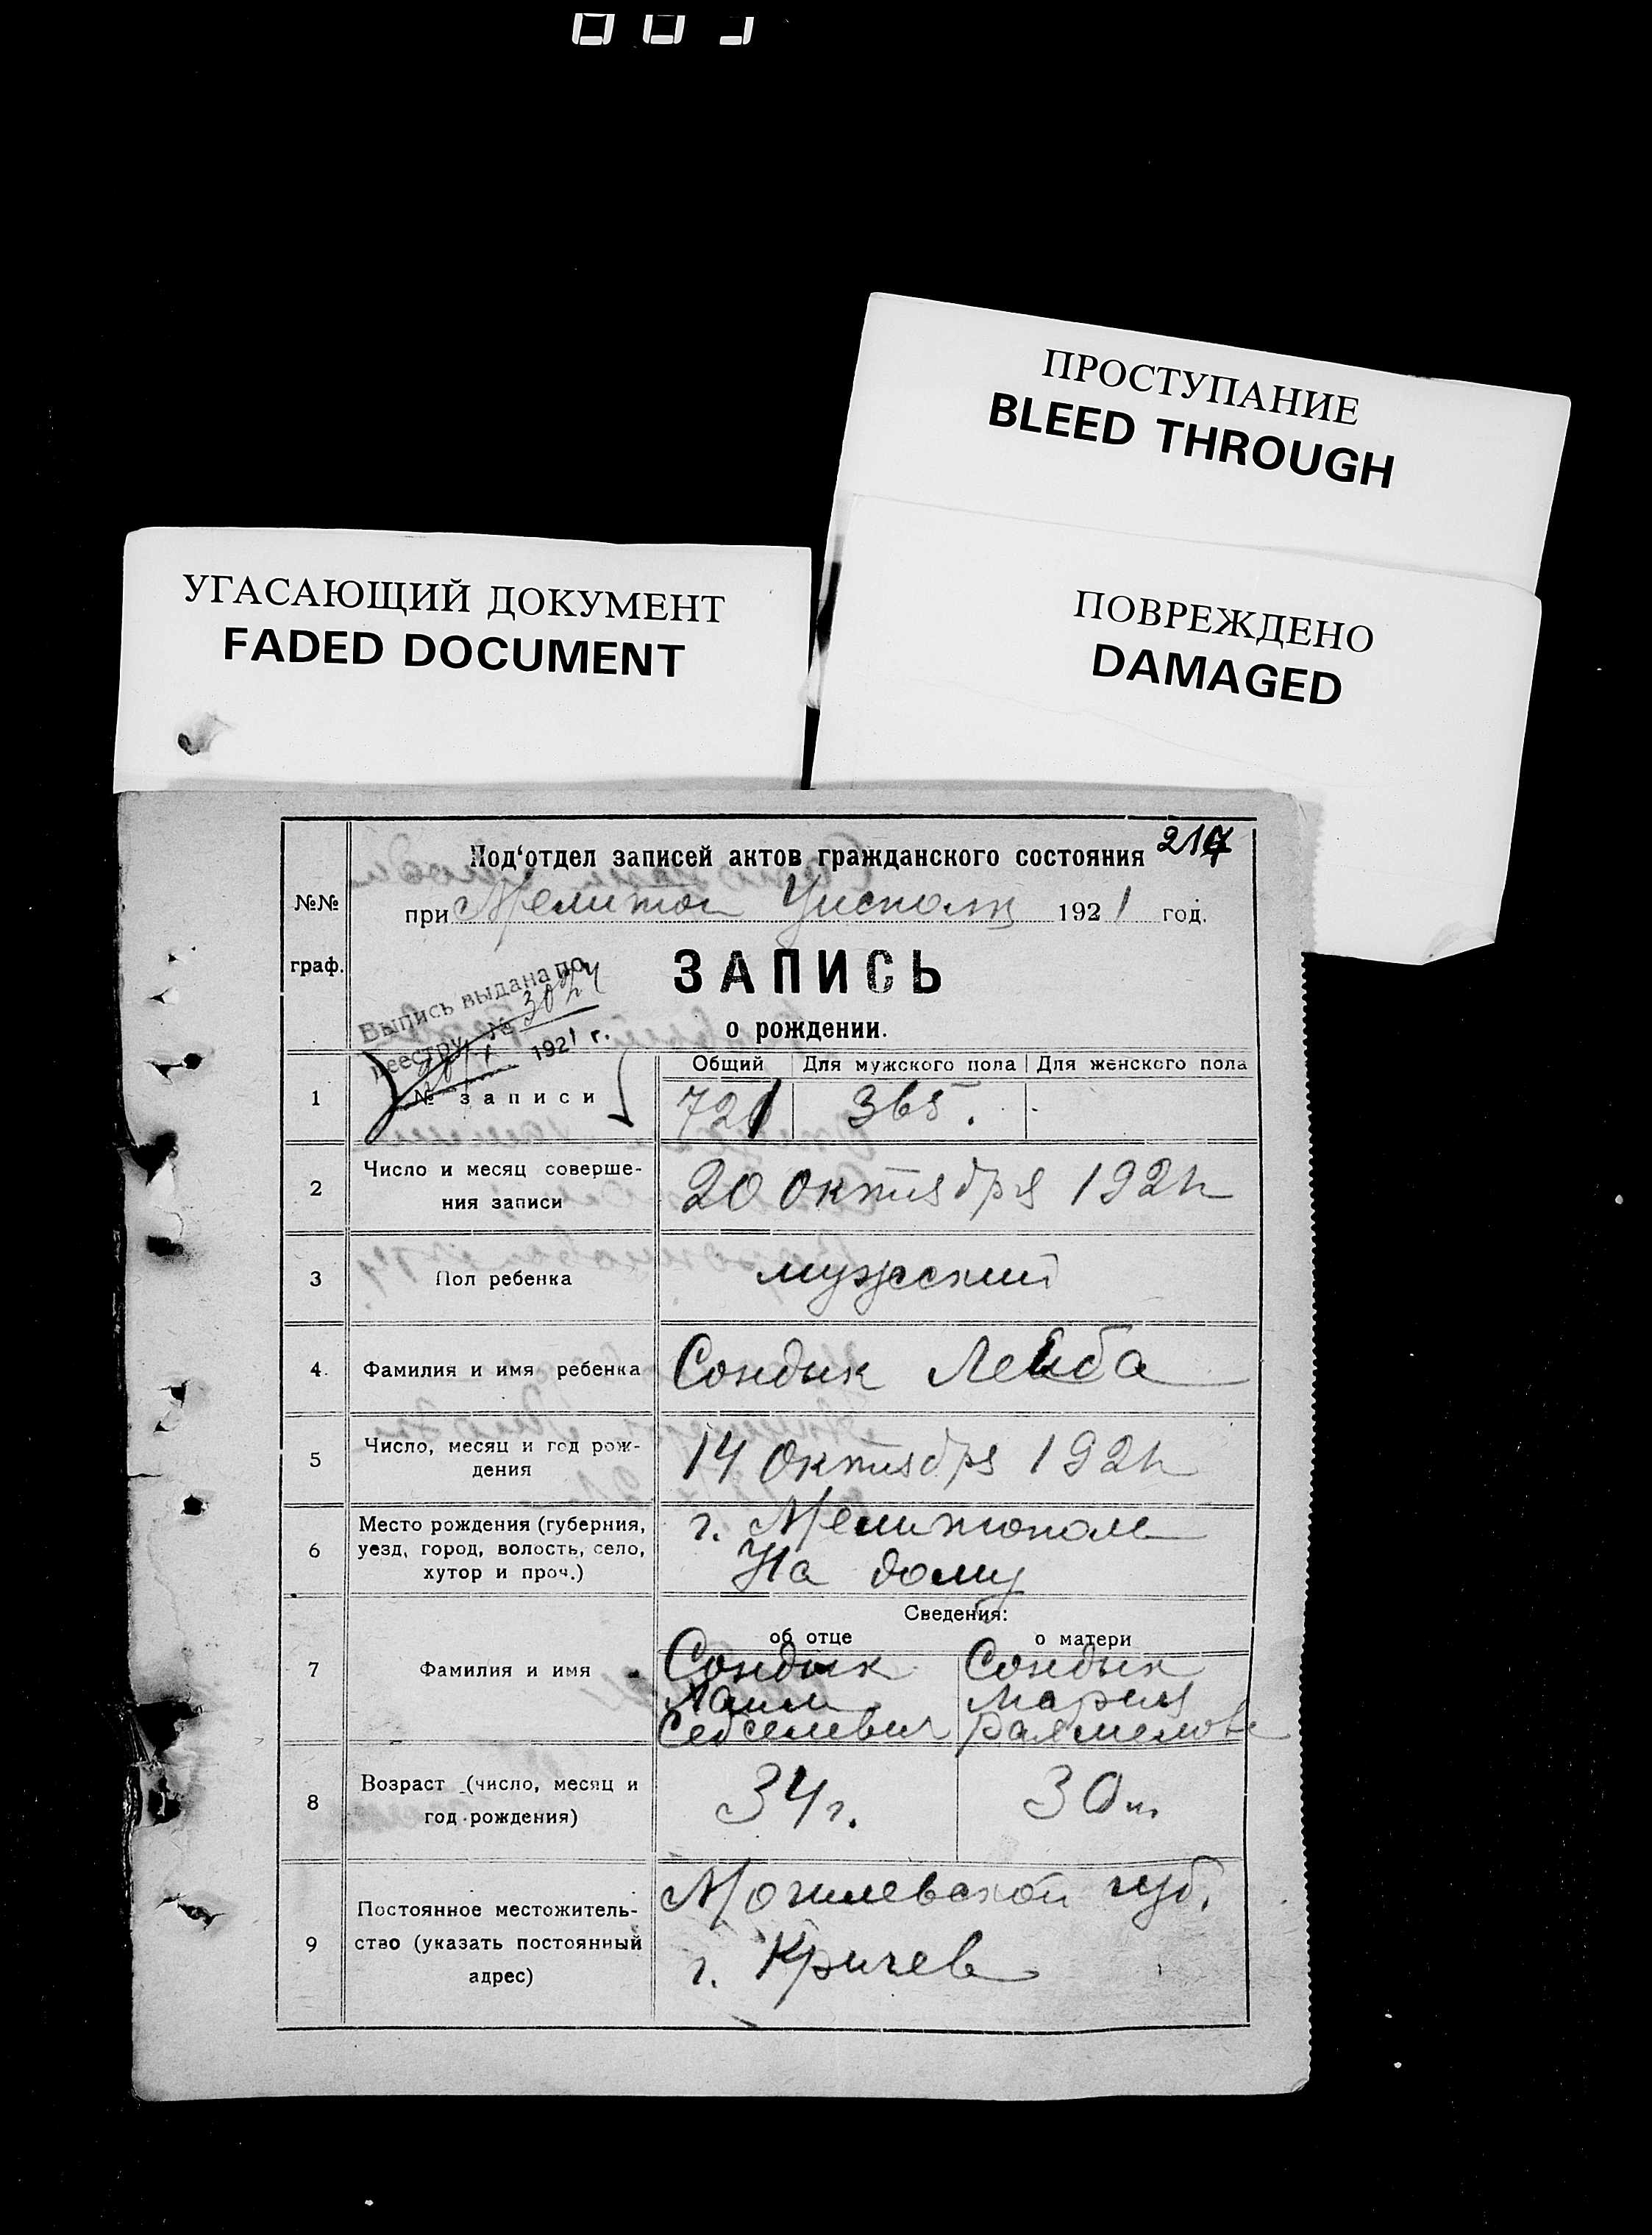 ПРОСТУПАНИЕ
BLEED THROUGH
УГАСАЮЩИЙ ДОКУМЕНТ
FADED DOCUMENT
ПОВРЕЖДЕНО
DAMAGED
217
Под'отдел записей актов гражданского состояния
№№ граф.
при Мелитоп Уисполк 1921 год.
ЗАПИСЬ
о рождении.
Выпись выдана по
реестру №
1921 г.
Общий Для мужского пола Для женского пола
1 № записи 721 365.
2 Число и месяц соверше-
ния записи 20 Октября 1921
3 Пол ребенка мужский
4. Фамилия и имя ребенка Сондык Лейба
5 Число, месяц и год рож-
дения 14 Октября 1921
6 Место рождения (губерния,
уезд, город, волость, село,
хутор и проч.)
г. Мелитополе
На дому
Сведения:
об отце о матери
7 Фамилия и имя Сондык Сондык
Мария
8 Возраст (число, месяц и
год рождения) 34 г. 30 л.
9 Постоянное местожитель-
ство (указать постоянный
адрес)
Могилевской губ.
г. Кричев